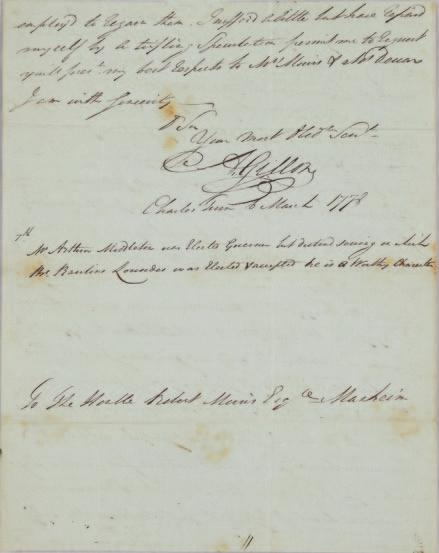 employ'd to Regain them. I suffer'd a little but have Repaired
myself by a trifling Speculation permit me to Request
my best Respects to Mrs Morris &
I am with Sincerity
D Sir
Your most Obedt. Servt.
A Gillon
Charles Town 6 March 1778
7th Mr Arthur Middleton was Elected Governor but declined serving on which
Mr. Rawlins Lowndes was Elected & accepted he is a Worthy Character
To The Honble Robert Morris Esqr Manheim